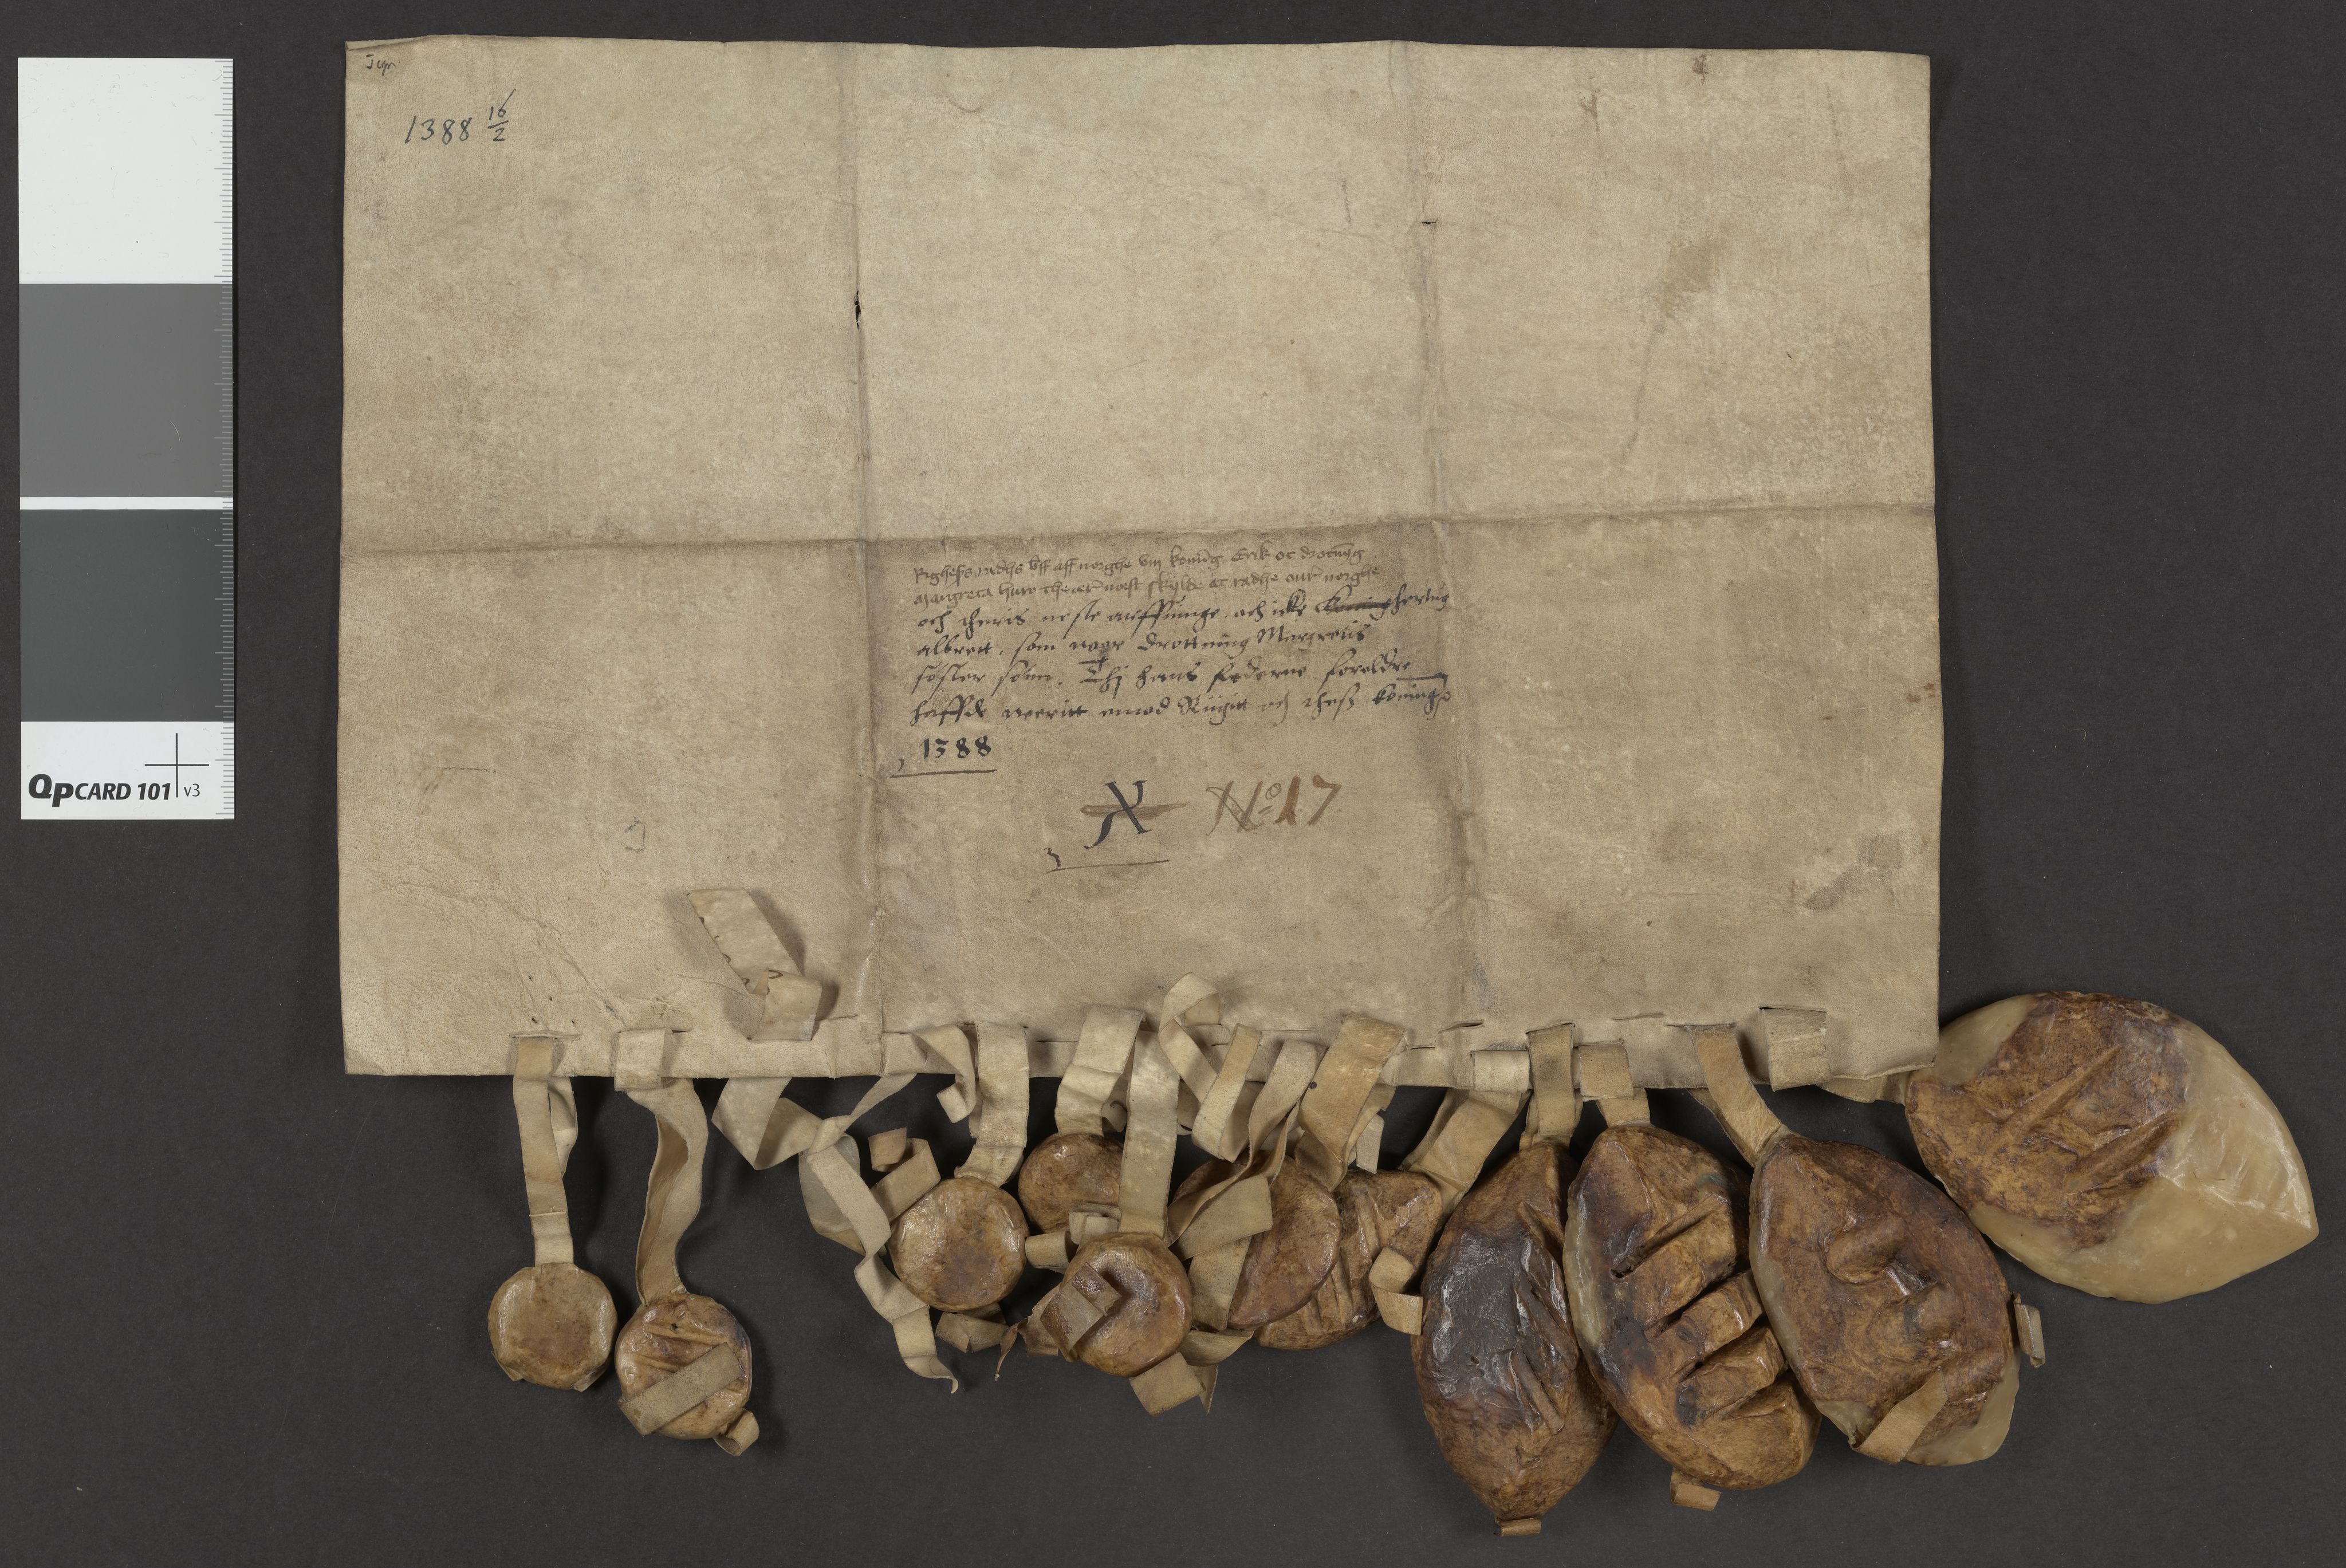 1388 16/2
Righesens radhs bff aff norghe vm koning Erik oc drotnīg
Margreta huro the ær næst skylde at radhe ouer norghe
och theris neste arffuinge. och icke koning hertug
albrett. som waar drottning Margretis
søster sønn. Thj hans federne foreldre
haffde weeritt emod Riigitt och thess koning
1388
X N° 17
QpCARD 101 v3